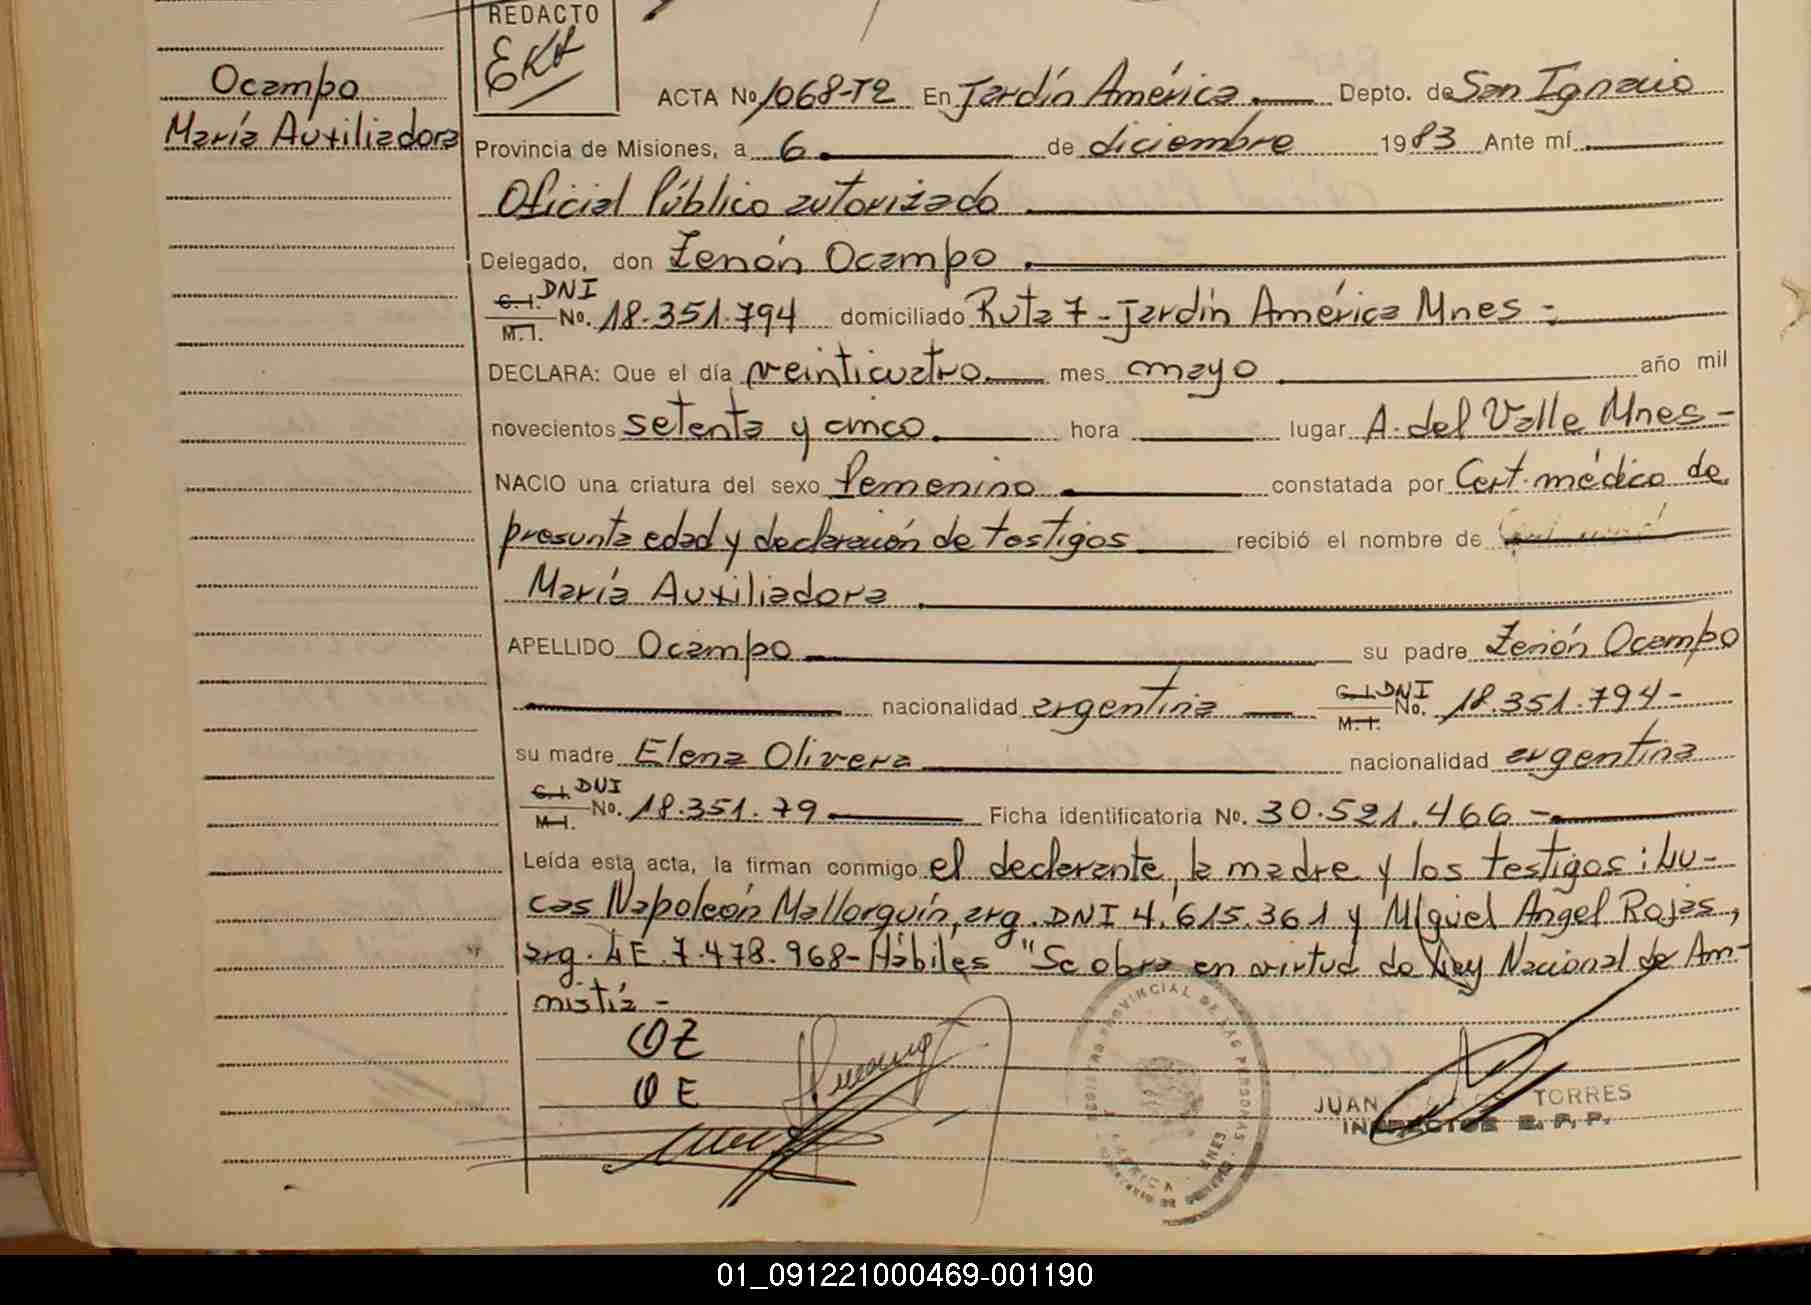 REDACTO
EKA
Ocampo
María Auxiliadora
ACTA No 1068-T2 En Jardín América Depto. de San Ignacio
Provincia de Misiones, a 6 de diciembre 1983 Ante mí
Oficial Público autorizado
Delegado, don Zenón Ocampo
C.I. DNI
M.I. No. 18.351.794 domiciliado Ruta 7 - Jardín América Mnes -
DECLARA: Que el día veinticuatro mes mayo año mil
novecientos setenta y cinco hora lugar A. del Valle Mnes -
NACIO una criatura del sexo femenino constatada por Cert. médico de
presunta edad y declaración de testigos recibió el nombre de
María Auxiliadora
APELLIDO Ocampo su padre Zenón Ocampo
nacionalidad argentina C.I. DNI M.I. No. 18.351.794 -
su madre Elena Olivera nacionalidad argentina
C.I. DNI
M.I. No. 18.351.79 Ficha identificatoria No. 30.521.466 -
Leída esta acta, la firman conmigo el declarante, la madre y los testigos: Lu-
cas Napoleón Mallorquín, arg. DNI 4.615.361 y Miguel Angel Rojas,
arg. LE. 7.478.968 - Hábiles "Se obra en virtud de Ley Nacional de Am-
nistía -
OZ
OE
PROVINCIAL DE LAS PERSONAS
MNES
JUAN TORRES
INSPECTOR R. P. P.
01_091221000469-001190